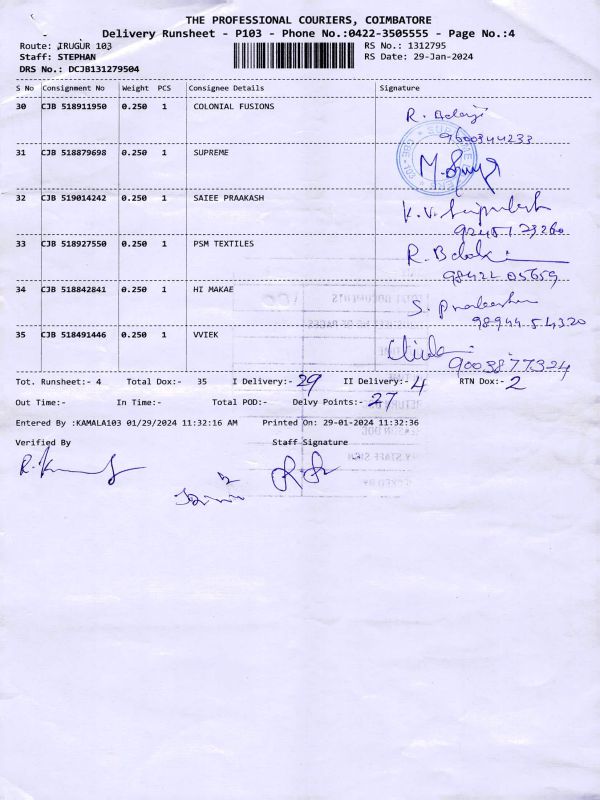 THE PROFESSIONAL COURIERS, COIMBATORE
Delivery Runsheet - P103 - Phone No.:0422-3505555 - Page No.:4
Route: IRUGUR 103 RS No.: 1312795
Staff: STEPHAN RS Date: 29-Jan-2024
DRS No.: DCJB131279504
S No Consignment No Weight PCS Consignee Details Signature
30 CJB 518911950 0.250 1 COLONIAL FUSIONS R. Balaji
9600344233
31 CJB 518879698 0.250 1 SUPREME
32 CJB 519014242 0.250 1 SAIEE PRAAKASH K.V.
33 CJB 518927550 0.250 1 PSM TEXTILES R.
98422 05659
34 CJB 518842841 0.250 1 HI MAKAE S.
98944 54320
35 CJB 518491446 0.250 1 VVIEK
9003877324
Tot. Runsheet:- 4 Total Dox:- 35 I Delivery:- 29 II Delivery:- 4 RTN Dox:- 2
Out Time:- In Time:- Total POD:- Delvy Points:- 27
Entered By :KAMALA103 01/29/2024 11:32:16 AM Printed On: 29-01-2024 11:32:36
Verified By Staff Signature